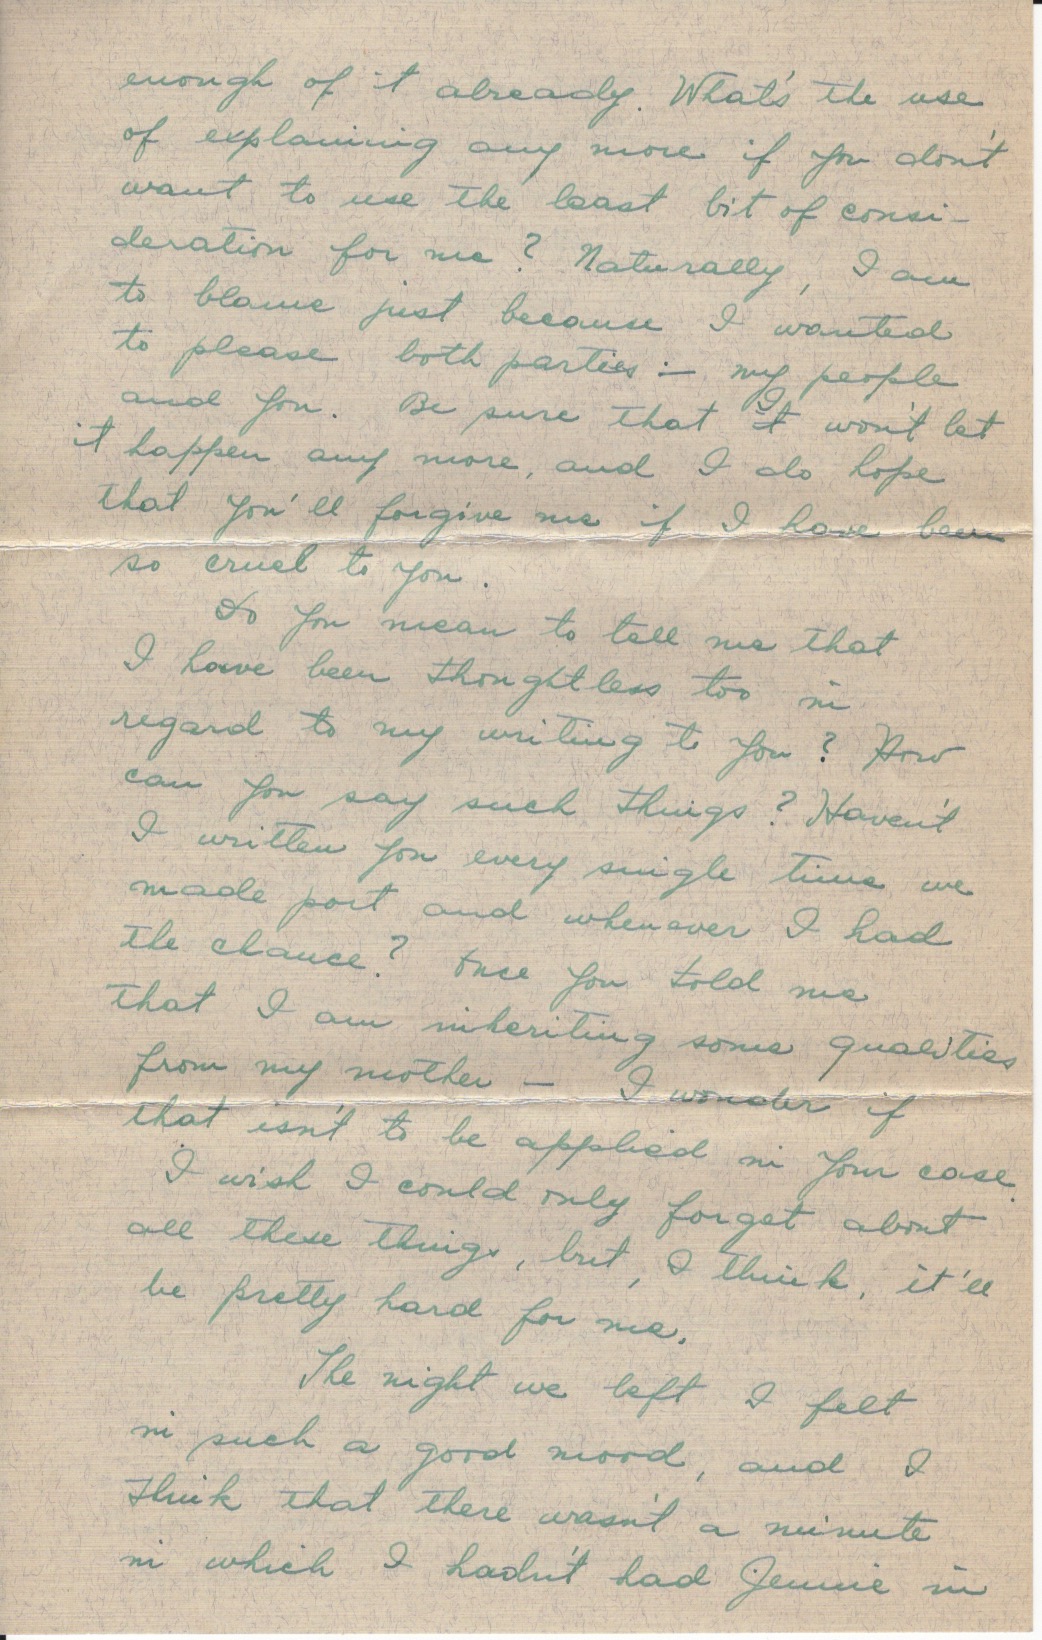 enough of it already. What's the use
of explaining any more if you don't
want to use the least bit of consi-
deration for me? Naturally, I am
to blame just because I wanted
to please both parties :- my people
and you. Be sure that I won't let
it happen any more, and I do hope
that you'll forgive me if I have been
so cruel to you.
Do you mean to tell me that
I have been thoughtless too in
regard to my writing to you? How
can you say such things? Haven't
I written you every single time we
made port and whenever I had
the chance? Once you told me
that I am inheriting some qualities
from my mother — I wonder if
that isn't to be applied in your case.
I wish I could only forget about
all these things, but, I think, it'll
be pretty hard for me.
The night we left I felt
in such a good mood, and I
think that there wasn't a minute
in which I hadn't had Jennie in